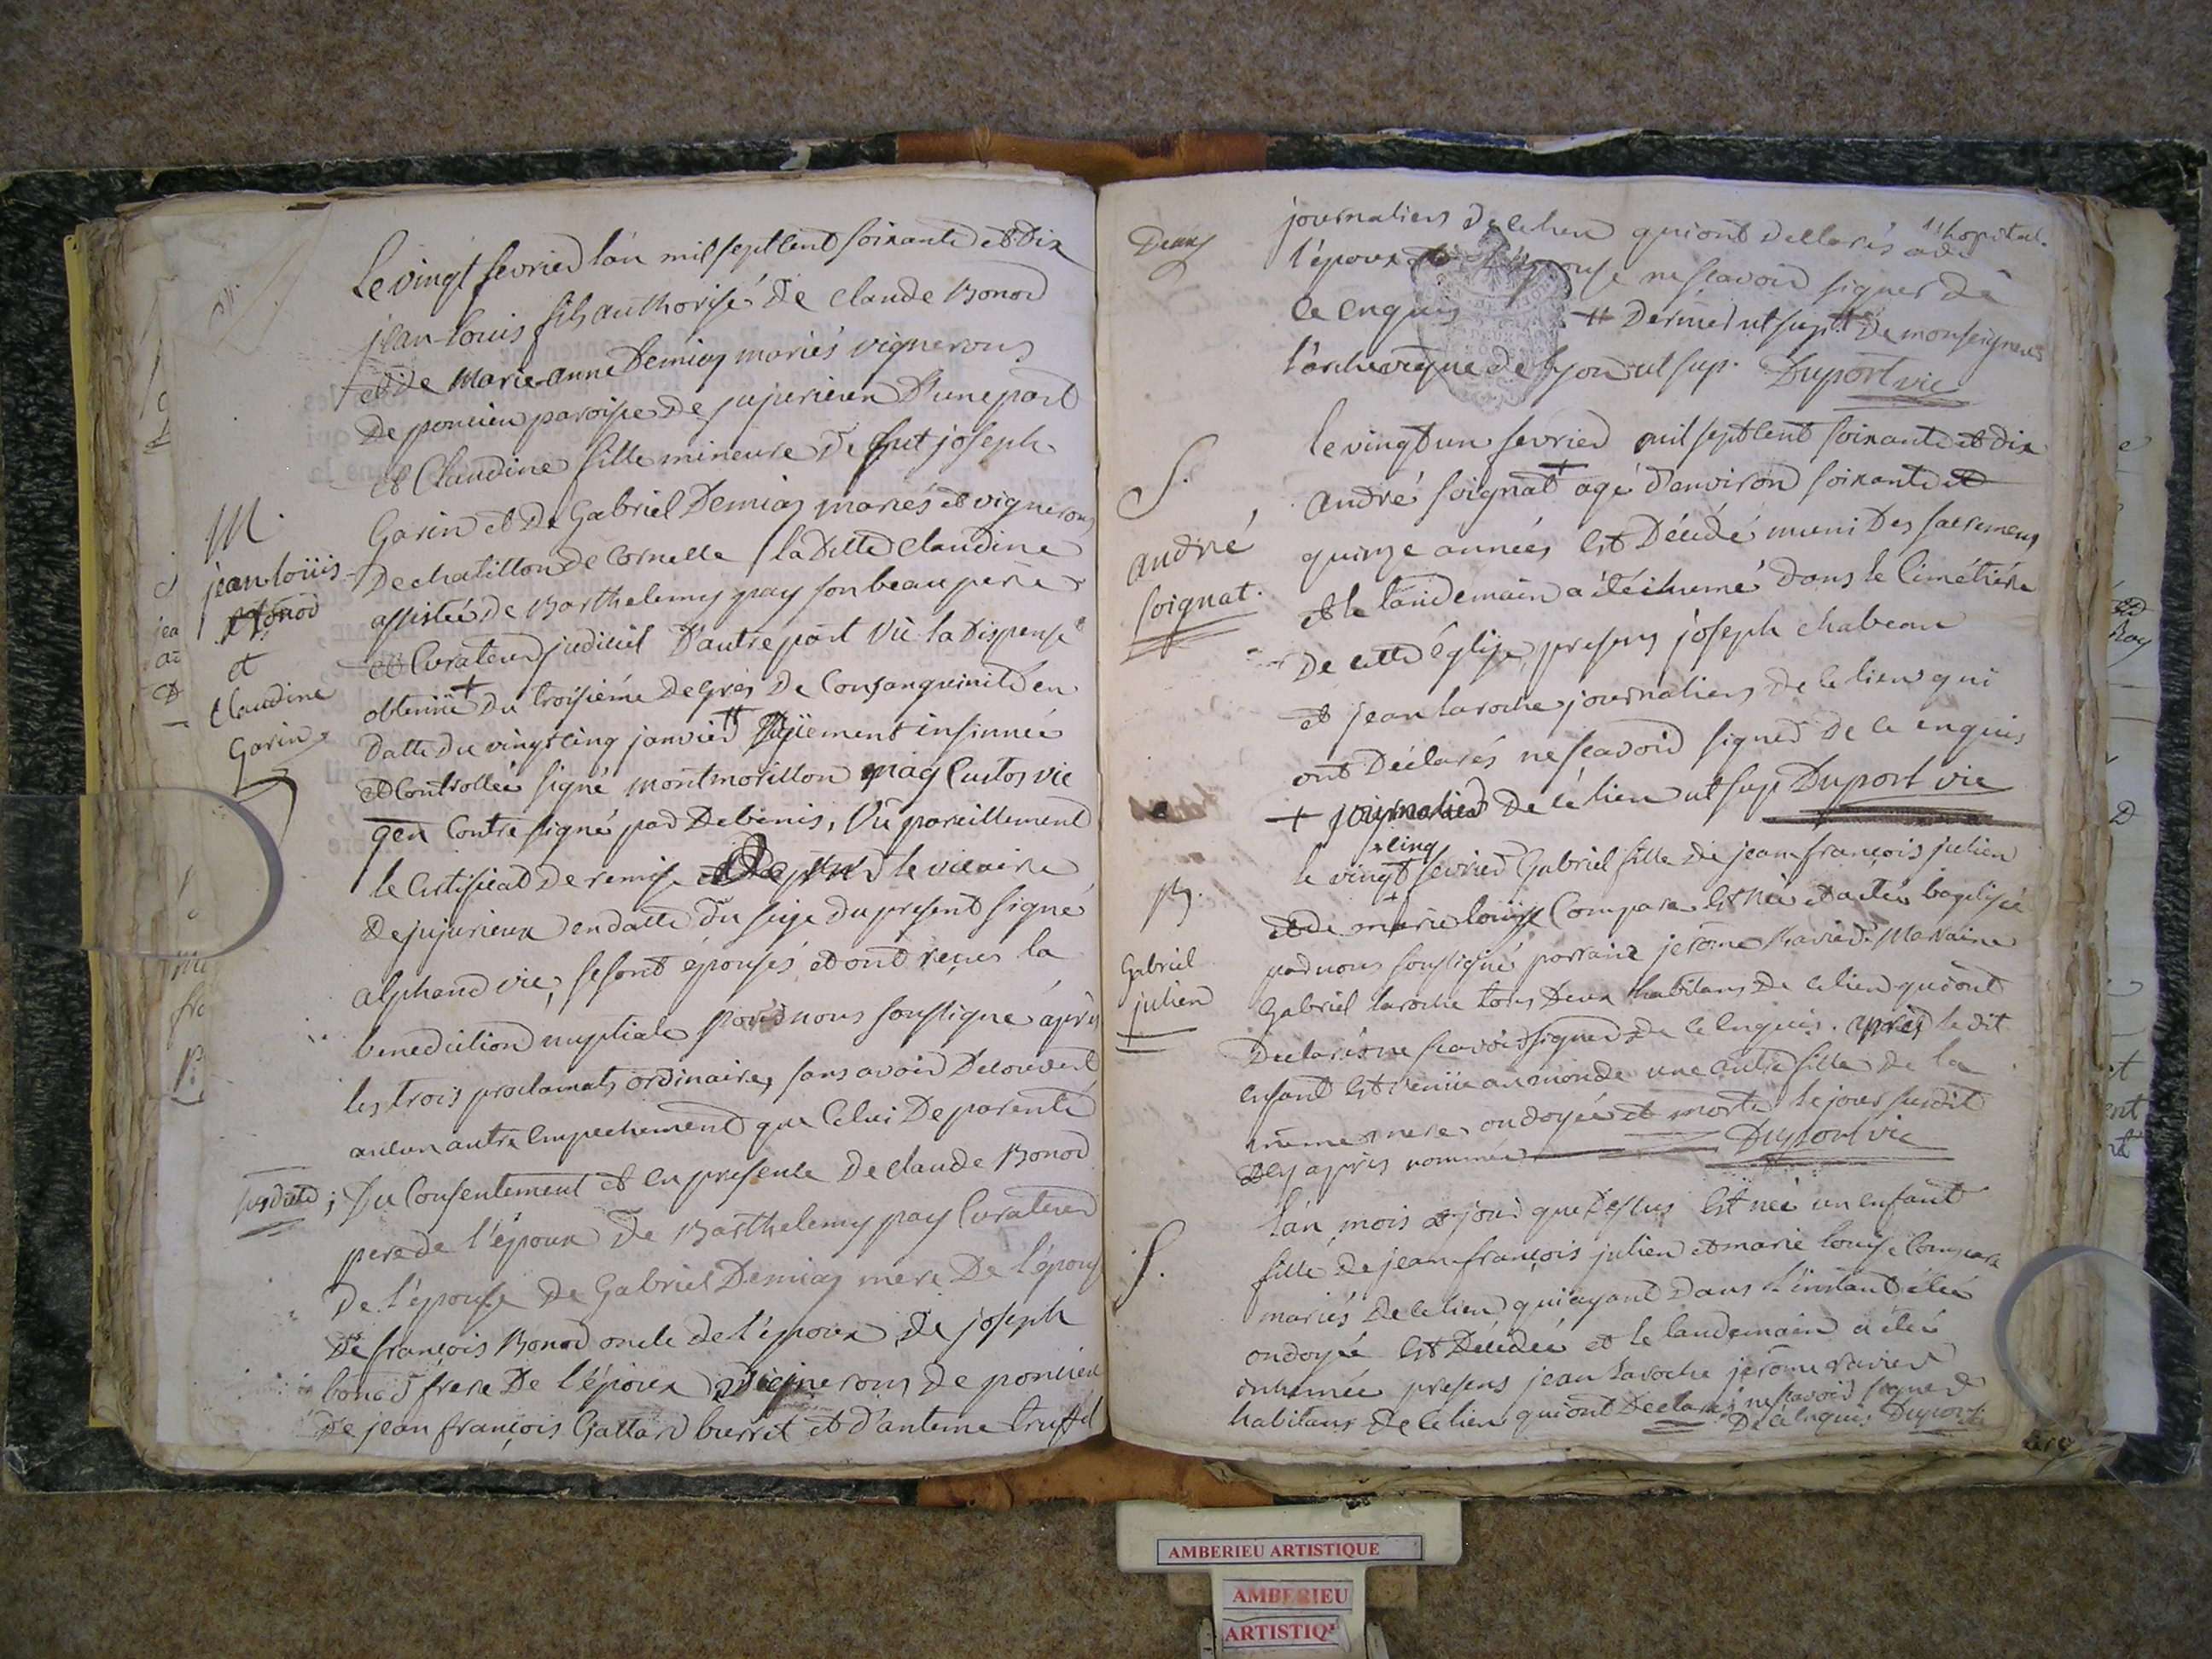 Le vingt fevrier l'an mil sept cent soixante et dix
jean-louis fils authorisé de claude Bonod
et de Marie-anne Demias mariés vignerons
De poncieu paroisse de jujurieux D'une part
et Claudine fille mineure De feut joseph
Garin et De Gabriel Demias mariés et vignerons
De chatillon de Cornelle / la Ditte claudine
assistée de Barthelemy pay son beau pere
et Curateur judiciel D'autre part vû la Dispense
obtenüe + Du troisiéme Degrés De Consanguinité en
datte du vingt cinq janvier # Duement insinuée
et Controllée signé montmorillon
gen Contresigné par Debenis, Vû pareillement
le Certificat De remise le vicaire
De jujurieux en datte Du seize du present signé
alphand vic, se sont épousés et ont reçus la
benediction nuptiale par nous soussigné aprés
les trois proclamats ordinaires, sans avoir Decouvert
aucun autre empechement que Celui De parenté
susdite ; Du Consentement et en presence De claude Bonod
pere de l'époux De Barthelemy pay Curateur
De l'épouse De Gabriel Demias mere De l'épouse
De françois Bonod oncle de l'époux De joseph
bonod frere De l'époux vignerons De poncieu
De jean françois Gallard burret et d'anteme truffet
M.
jean loüis
Bonod
et
Claudine
Garin
Demas
journaliers De ce lieu qui ont Declarés avec
l'époux et l'épouse ne scavoir signer De
ce enquis # Dernier ut sup. + De monseigneur
l'archevêque De Lyon ut sup. Duport vic
hopital.
S.
andré
soignat.
le vingt un fevrier mil sept cent soixante et dix
André soignat + agé d'environ soixante et
quinze années est Décédé muni Des sacremens
et le landemain a été inhumé Dans le Cimétiére
De cette église, presens joseph chabeau
et jean laroche journaliers De ce lieu qui
ont Déclarés ne scavoir signer De ce enquis
+ journalier De cé lieu ut sup Duport vic
B.
Gabriel
julien
+ cinq
le vingt fevrier Gabriel fille De jean françois julien
et de marie loüise Compare est née et a été baptisée
par nous soussigné parrain jerôme Ravier Marraine
Gabriel laroche tous Deux habitans De ce lieu qui ont
Declarés ne scavoir signer De ce enquis. aprés le dit
enfant est venüe au monde une autre fille De la
même mere, ondoyée et morte le jour susdit
cy aprés nommée Duport vic
S.
l'an, mois et jour que Dessus est neé un enfant
fille De jean françois julien et marie louise Compare
mariés De ce lieu qui ayant Dans l'instant été
ondoyée est Décédée et le landemain a été
inhumée presens jean Laroche jerôme ravier
habitans De ce lieu qui ont Declaré ne scavoir signer
De ce enquis Duport
AMBERIEU ARTISTIQUE
AMBERIEU
ARTISTIQ